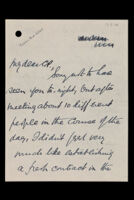 My dear
Sorry not to have
seen you to-night, but after
meeting about 10 different
people in the course of the
day, I didn't feel very
much like establishing
a fresh contact in the